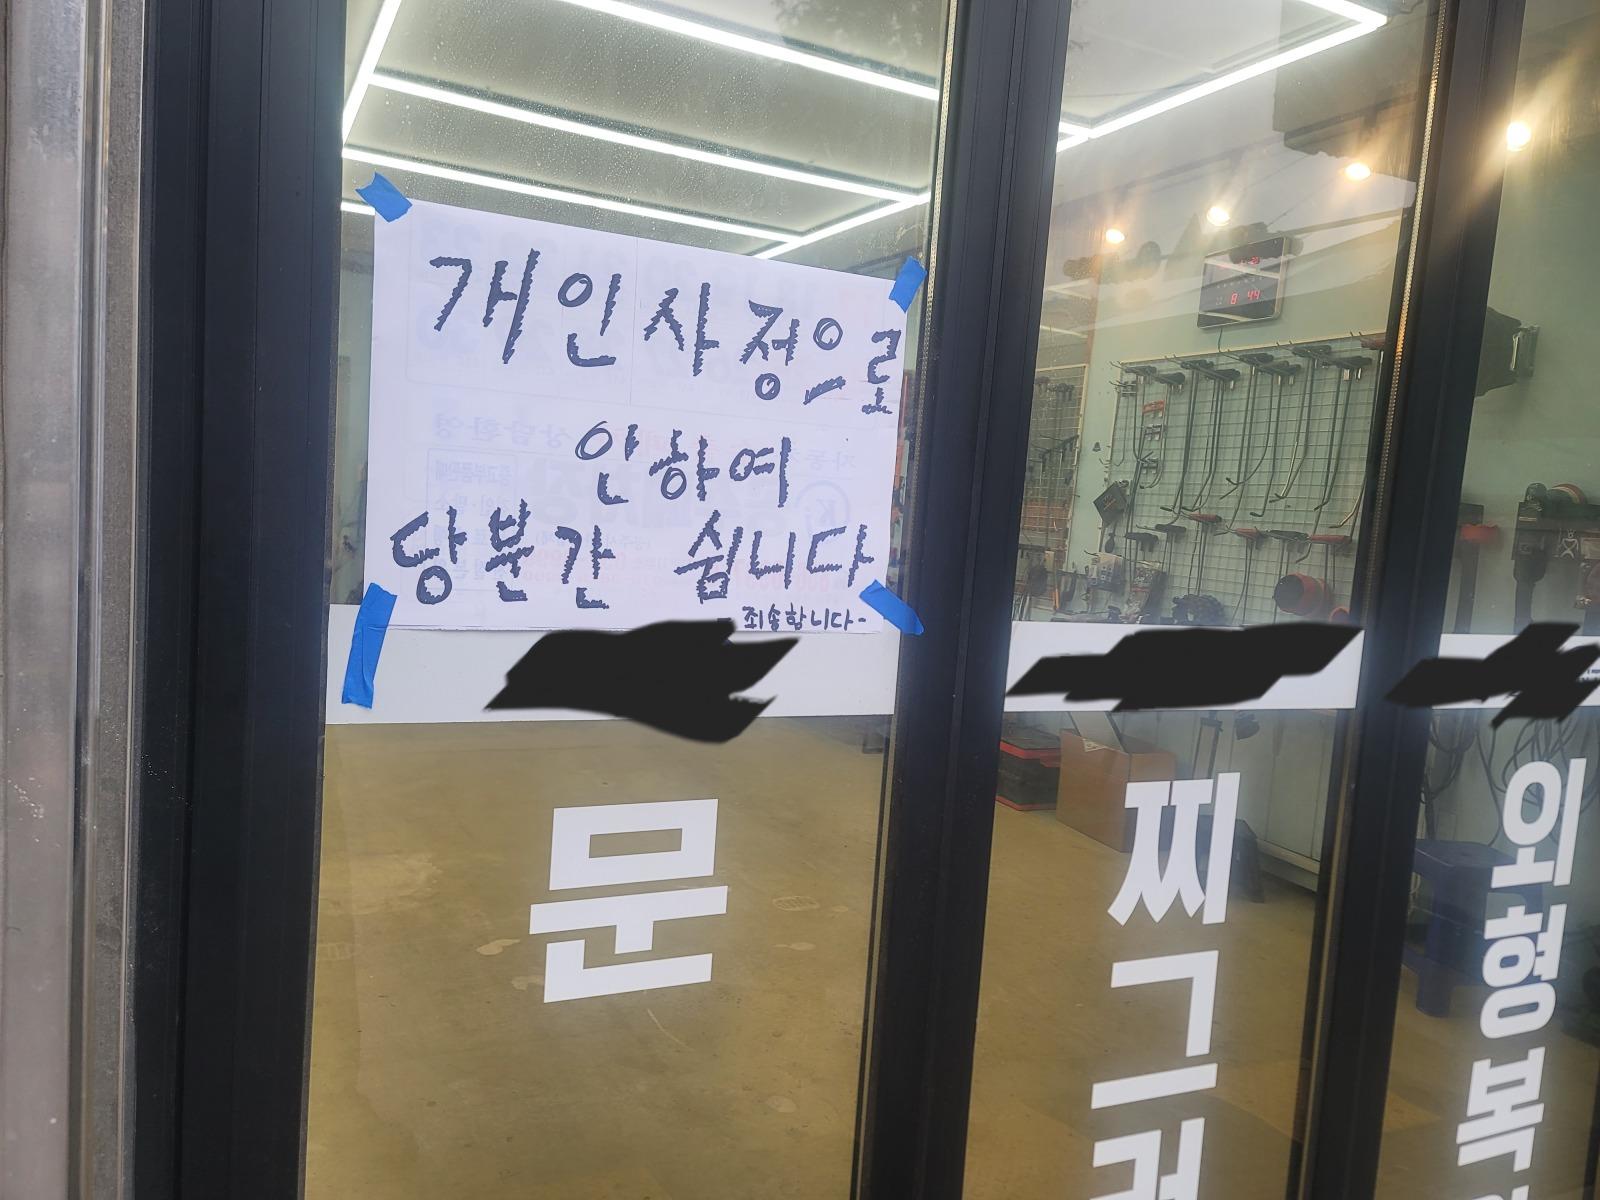 개인사정으로
인하여
당분간 쉽니다
- 죄송합니다-
문
찌그러
외형복
8 49